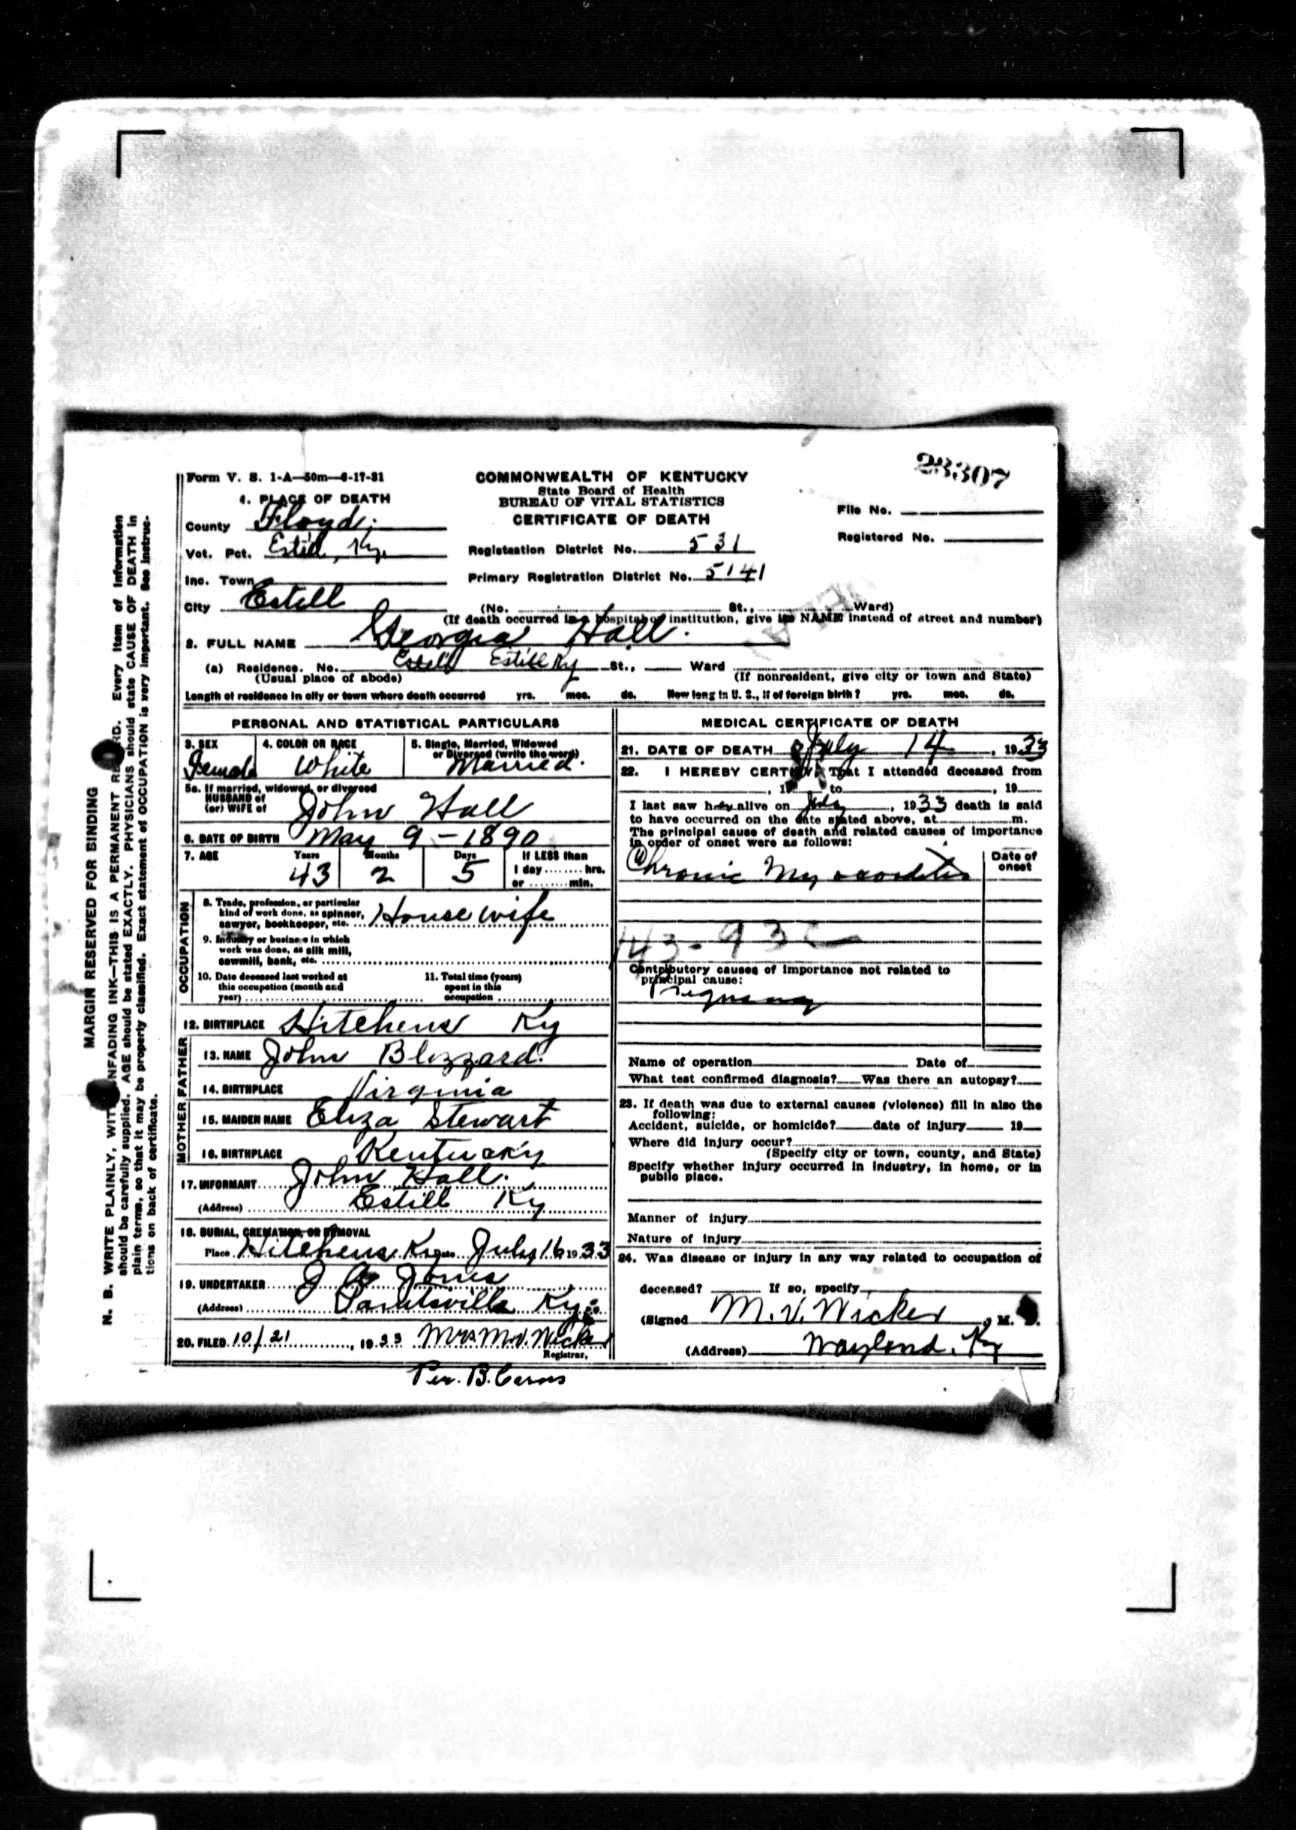 23307
Form V. S. 1-A—50m—6-17-31
COMMONWEALTH OF KENTUCKY
State Board of Health
BUREAU OF VITAL STATISTICS
CERTIFICATE OF DEATH
1. PLACE OF DEATH
County Floyd.
Vot. Pct. Estill, Ky.
Inc. Town
City Estill
File No.
Registered No.
Registration District No. 531
Primary Registration District No. 5141
(No. St., Ward)
(If death occurred in a hospital or institution, give its NAME instead of street and number)
2. FULL NAME Georgia Hall.
(a) Residence. No. Estill Estill Ky St., Ward
(Usual place of abode) (If nonresident, give city or town and State)
Length of residence in city or town where death occurred yrs. mos. ds. How long in U. S., if of foreign birth? yrs. mos. ds.
PERSONAL AND STATISTICAL PARTICULARS
3. SEX Female
4. COLOR OR RACE White
5. Single, Married, Widowed
or Divorced (write the word)
Married.
5a. If married, widowed, or divorced
HUSBAND of
(or) WIFE of John Hall
6. DATE OF BIRTH May 9 - 1890
7. AGE Years 43 Months 2 Days 5 If LESS than
1 day hrs.
or min.
OCCUPATION
8. Trade, profession, or particular
kind of work done, as spinner,
sawyer, bookkeeper, etc. House wife
9. Industry or business in which
work was done, as silk mill,
sawmill, bank, etc.
10. Date deceased last worked at
this occupation (month and
year)
11. Total time (years)
spent in this
occupation
12. BIRTHPLACE Hitchens Ky
FATHER
13. NAME John Blizzard.
14. BIRTHPLACE Virginia
MOTHER
15. MAIDEN NAME Eliza Stewart
16. BIRTHPLACE Kentucky
17. INFORMANT John Hall.
(Address) Estill Ky
18. BURIAL, CREMATION, OR REMOVAL
Place Hitchens Ky Date July 16 1933
19. UNDERTAKER J Jones
(Address) Paintsville Ky.
20. FILED 10/21, 1933 Mrs M.V. Wicker
Registrar.
Per. B. Carns
MEDICAL CERTIFICATE OF DEATH
21. DATE OF DEATH July 14, 1933
22. I HEREBY CERTIFY, That I attended deceased from
, 19 to , 19
I last saw her alive on July, 1933 death is said
to have occurred on the date stated above, at m.
The principal cause of death and related causes of importance
in order of onset were as follows:
Date of
onset
Chronic Myocarditis
43-93c
Contributory causes of importance not related to
principal cause:
Pregnancy
Name of operation Date of
What test confirmed diagnosis? Was there an autopsy?
23. If death was due to external causes (violence) fill in also the
following:
Accident, suicide, or homicide? date of injury 19
Where did injury occur?
(Specify city or town, county, and State)
Specify whether injury occurred in industry, in home, or in
public place.
Manner of injury
Nature of injury
24. Was disease or injury in any way related to occupation of
deceased? If so, specify
(Signed M. V. Wicker, M. D.
(Address) Wayland, Ky
MARGIN RESERVED FOR BINDING
N. B. WRITE PLAINLY, WITH UNFADING INK—THIS IS A PERMANENT RECORD. Every item of information
should be carefully supplied. AGE should be stated EXACTLY. PHYSICIANS should state CAUSE OF DEATH in
plain terms, so that it may be properly classified. Exact statement of OCCUPATION is very important. See instruc-
tions on back of certificate.